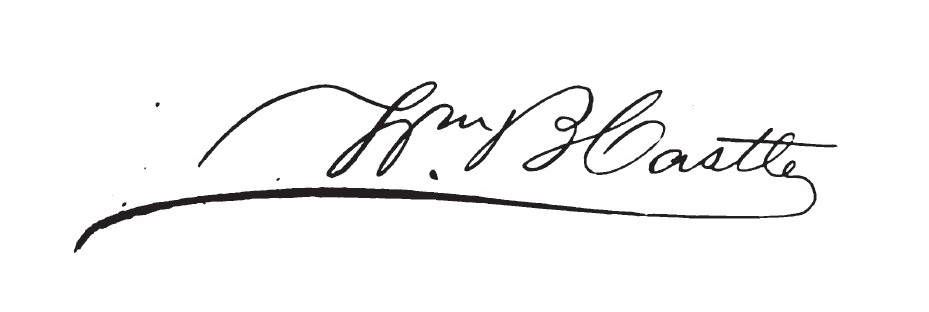 Wm B Castle